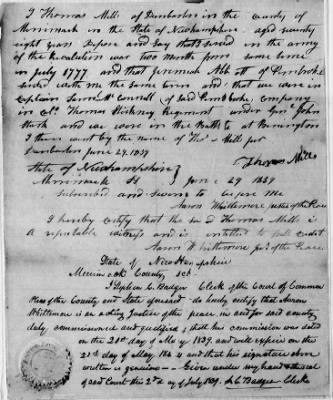 I Thomas Mills of Dunbarton in the County of
Merrimack in the State of Newhampshire aged seventy
eight years Depose and Say that I served in the army
of the Revolution war two months from some time
in July 1777 and that Jeremiah Abbott of Pembroke
served with me the same term and that we were in
Captain McConnell of said Pembroke, Company
in Col. Thomas Stickney Regiment under Gen. John
Stark and we were in the Battle at Bennington
I there went by the name of Thos Mills
Dunbarton June 29. 1839
Thomas Mills
State of Newhampshire
Merrimack Ss. June 29 1839
Subscribed and sworn to before me
Aaron Whittemore Justice of the Peace
I hereby certify that the said Thomas Mills is
a reputable witness and is entitled to full credit
Aaron Whittemore Jus of the Peace
State of New Hampshire
Merrimack County, Sct.
I Stephen C. Badger Clerk of the Court of Common
Pleas of the County and State aforesaid do hereby certify that Aaron
Whittemore is an acting Justice of the peace in and for said county
duly commissioned and qualified; that his commission was dated
on the 21st day of May 1839, and will expire on the
21st day of May 1844 and that his signature above
written is genuine — Given under my hand & the seal
of said Court this 2d day of July 1839. S C Badger Clerk